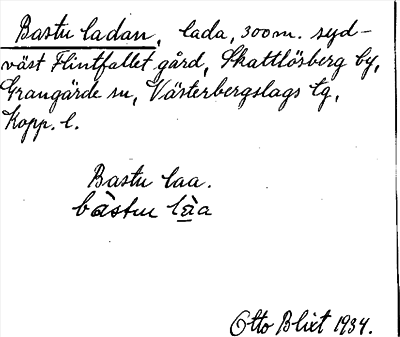 Bastu ladan, lada, 300 m. syd-
väst Flintfallet gård, Skattlösberg by,
Grangärde sn, Västerbergslags tg,
Kopp. l.
Bastu laa.
bàstu là̱a
Otto Blixt 1934.